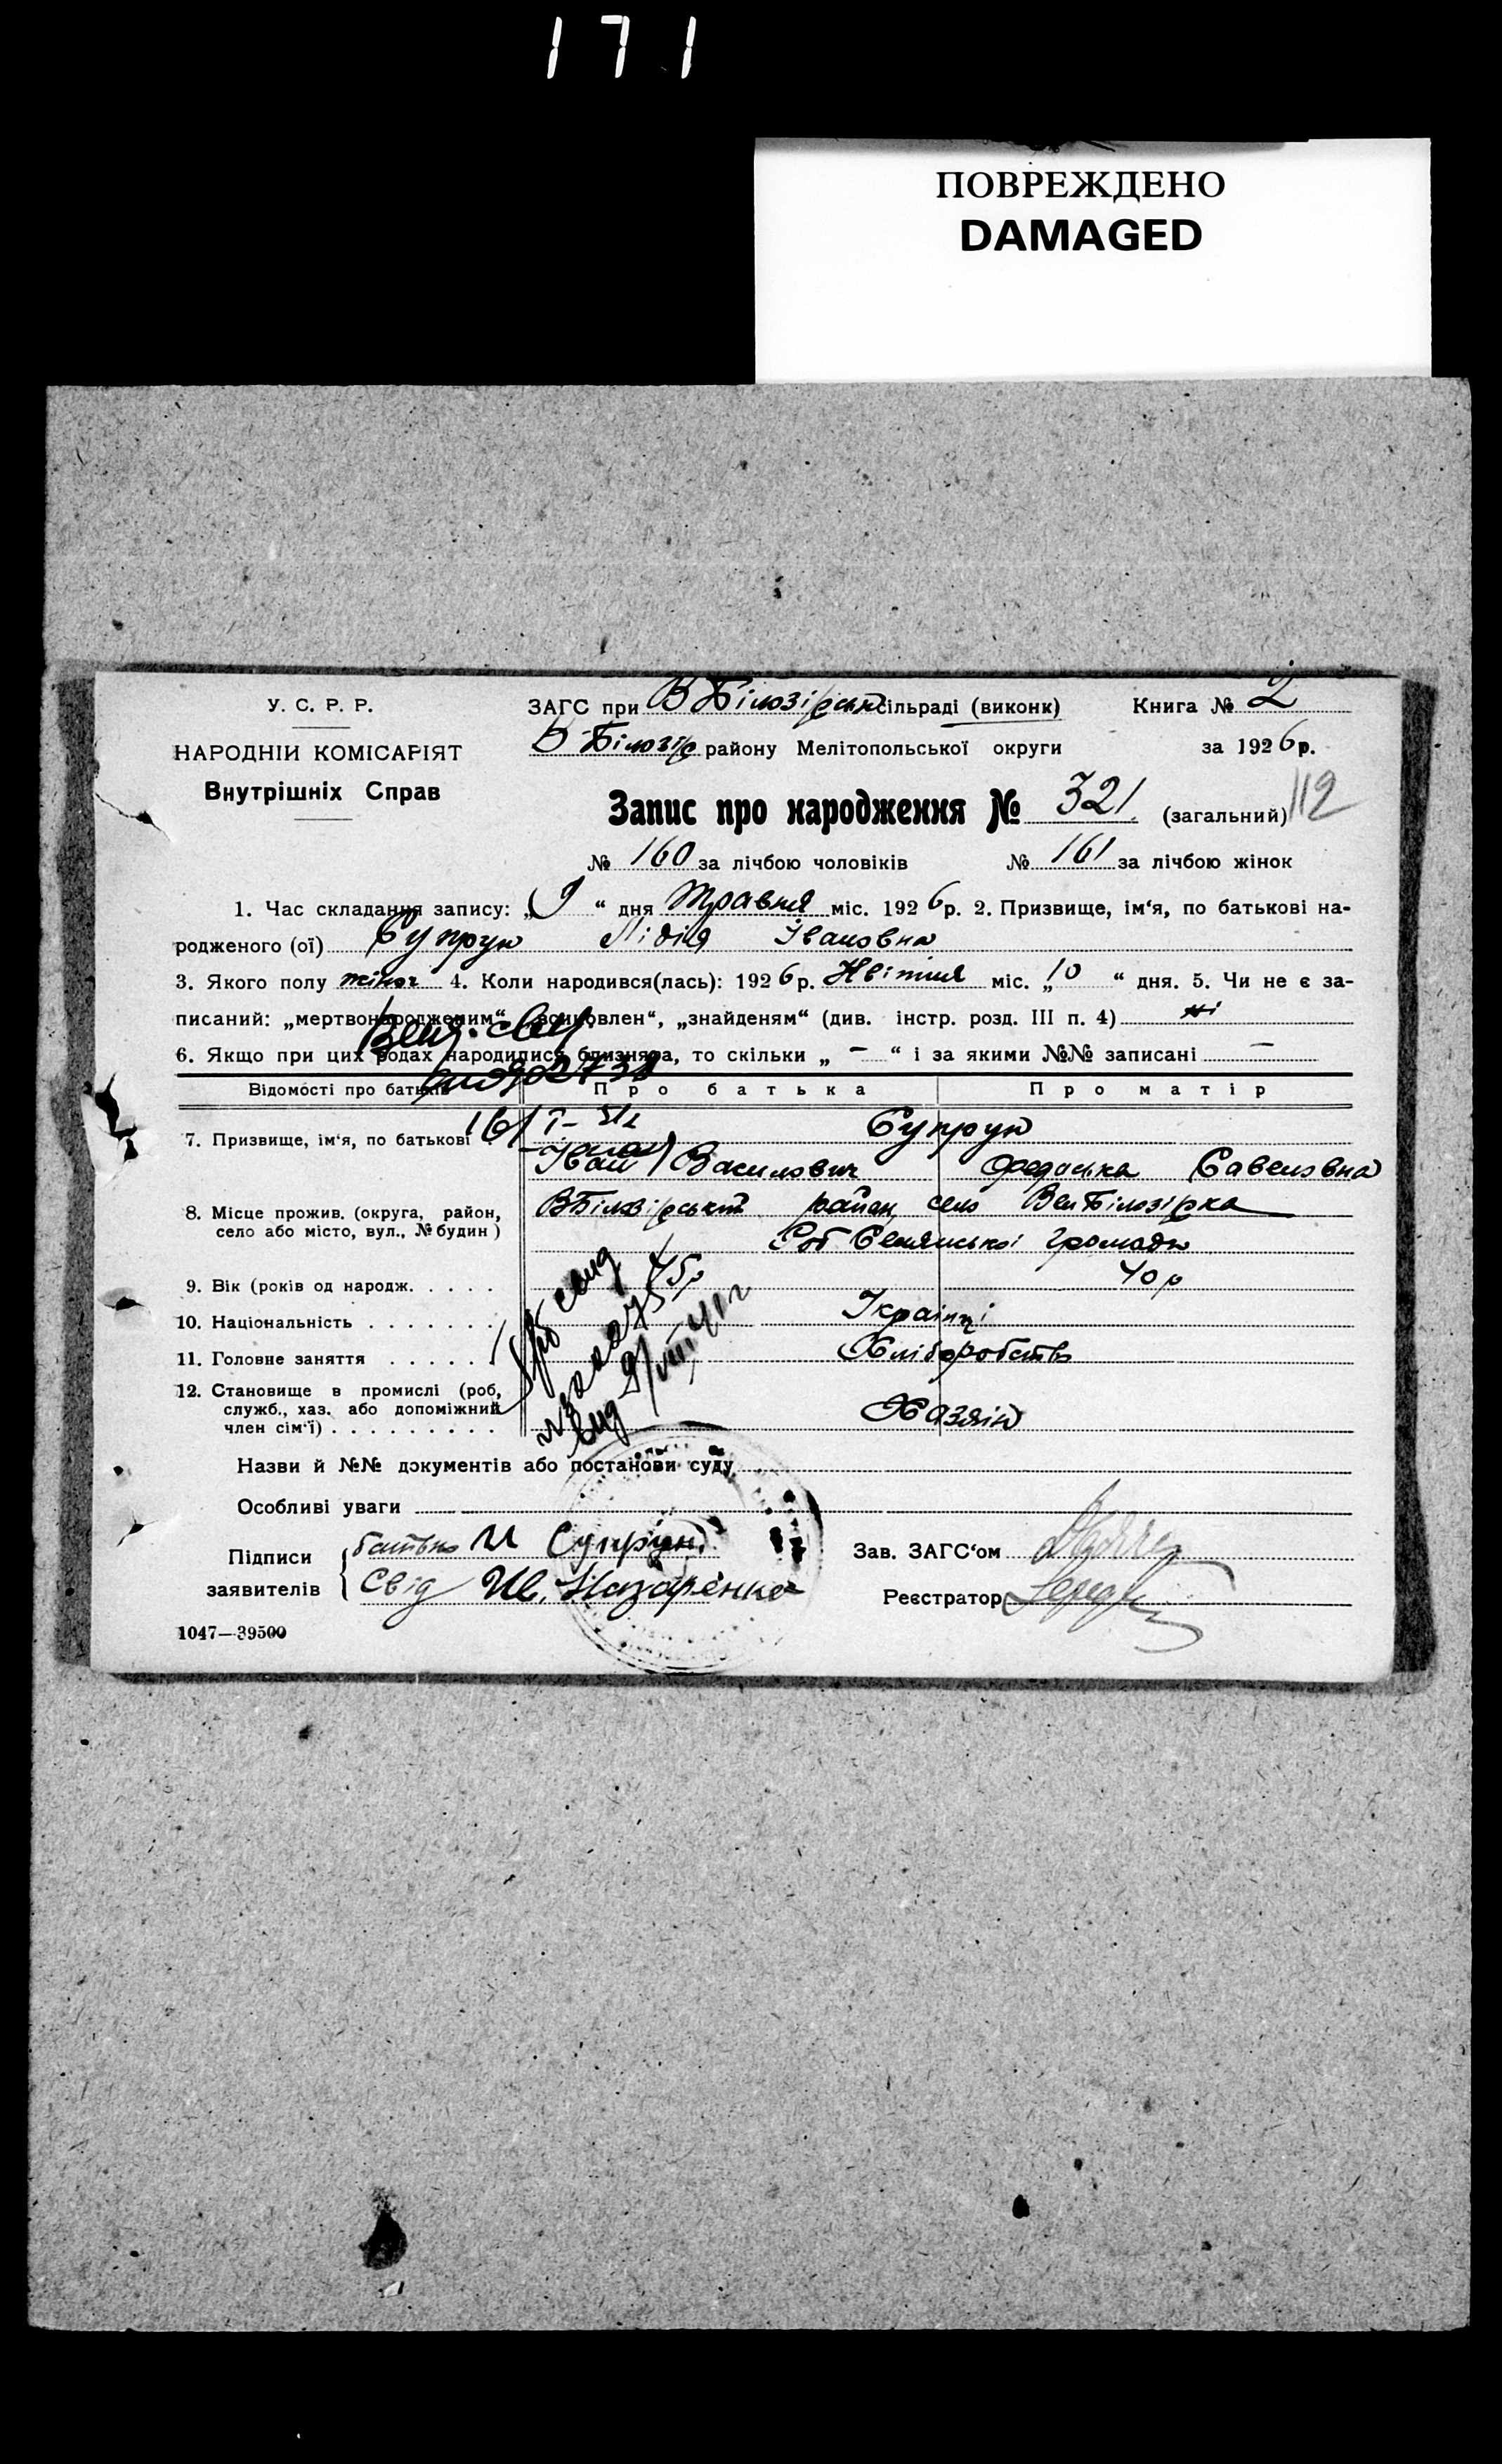 171
ПОВРЕЖДЕНО
DAMAGED
У. С. Р. Р.
НАРОДНІЙ КОМІСАРІЯТ
Внутрішніх Справ
ЗАГС при В Білозірськ сільраді (виконк) Книга № 2
В-Білозір району Мелітопольської округи за 1926 р.
Запис про народження № 321 (загальний) 112
№ 160 за лічбою чоловіків № 161 за лічбою жінок
1. Час складання запису: „ “ дня Травня міс. 1926 р. 2. Призвище, ім‘я, по батькові на-
родженого (ої) Супрун Лідія Івановна
3. Якого полу жіноч 4. Коли народився(лась): 1926 р. Квітня міс. „10 “ дня. 5. Чи не є за-
писаний: „мертвонародженим“ „всиновлен“, „знайденям“ (див. інстр. розд. III п. 4) ні
6. Якщо при цих родах народилися близнята, то скільки „ – “ і за якими №№ записані –
Відомості про батьків Про батька Про матір
7. Призвище, ім‘я, по батькові Супрун
Іван Василович Федоська Савеловна
8. Місце прожив. (округа, район, село або місто, вул., № будин) ВБілозірський район, село Вел Білозірка
громади
9. Вік (років од народж. . . . . 45р 40р
10. Національність . . . . . . . Українці
11. Головне заняття . . . . . . Хліборобство
12. Становище в промислі (роб, служб., хаз. або допоміжний член сім‘ї) . . . . . . . . . Хазяїн
Назви й №№ документів або постанови суду
Особливі уваги
Підписи заявителів { батько И Супрун
Свід Ив. Назаренко
Зав. ЗАГС‘ом
Реєстратор
1047—39500